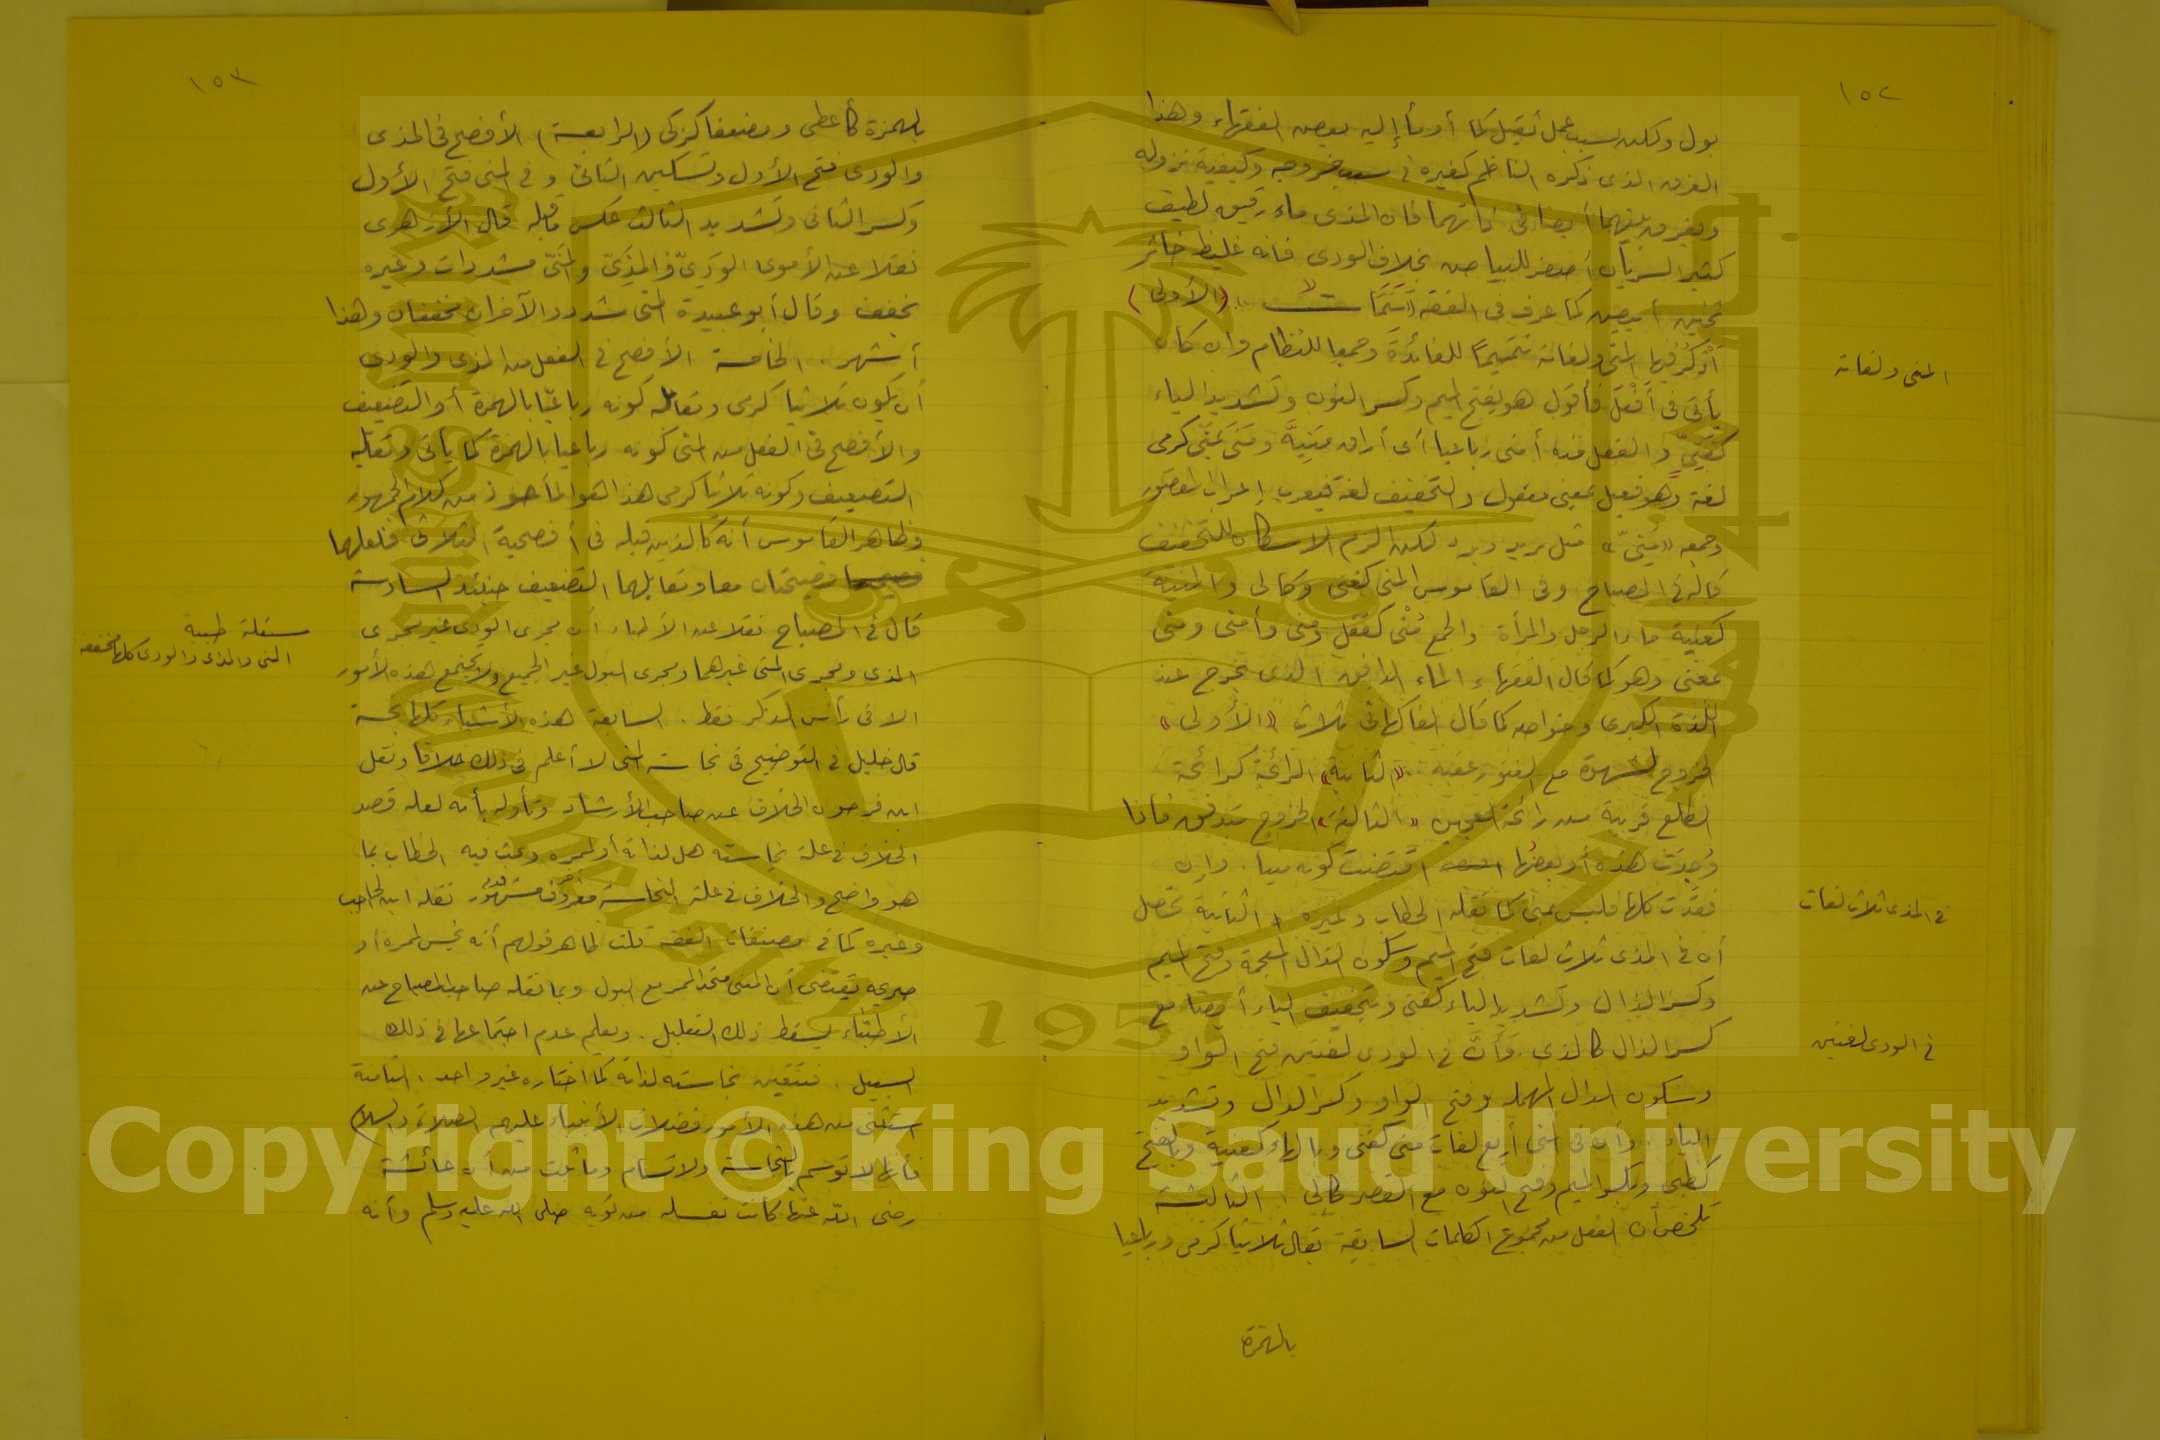 ١٥٢
بول ولكن بسبب عمل ثقيل كما أومأ إليه بعض الفقهاء وهذا
الفرق الذى ذكره الناظم كغيره فى سبب خروجه وكيفية نزوله
ويفرق بينهما أيضا فى ذاتهما فان المذى ماء رقيق لطيف
كثير السريان أصفر للبياض بخلاف الودى فانه غليظ خاثر
ثخين أبيض كما عرف فى الفقه تتمات (الأولى)
أذكر فيها المنى ولغاته تتميما للفائدة وجمعا للنظام وان كان
يأتى فى فأقول هو بفتح الميم وكسر النون وتشديد الياء
كغنى والفعل منه أمنى رباعيا أى أراق منيه ومنى يمنى كرمى
لغة وهو فعيل بمعنى مفعول والتخفيف لغة فيعرب إعراب المقصور
وجمعه «منى» مثل بريد وبرد لكن الزم الاسكان للتخفيف
قاله فى المصباح وفى القاموس المنى كغنى وكالى والمنية
كغنية ماء الرجل والمرأة والجمع منى كقفل ومنى وأمنى ومنى
بمعنى وهو كما قال الفقهاء الماء الدافق الذى يخرج عند
اللذة الكبرى وخواصه كما قال الفاكهانى ثلاث «الأولى»
الخروج لشهوة مع الفتور عقبه «الثانية» الرائحة كرائحة
الطلع قريبة من رائحة العجين «الثالثة» الخروج بتدفق فاذا
وجدت هذه أو بعضها اقتضت كونه منيا. وإن
فقدت كلها فليس بمنى كما نقله الحطاب وغيره. الثانية تحصل
أن فى المذى ثلاث لغات فتح الميم وسكون الذال المعجمة وفتح الميم
وكسر الذال وتشديد الياء كغنى وبتخفيف الياء أيضا مع
كسر الذال كالذى. وأن فى الودى لغتين فتح الواو
وسكون الدال المهملة وفتح الواو وكسر الدال وتشديد
الياء. وأن فى المنى أربع لغات منى كغنى وبالهاء كغنية وبالفتح
وبكسر الميم وفتح النون مع القصر كالى. الثالثة
تلخص أن الفعل من مجموع الكلمات السابقة يقال ثلاثيا كرمى ورباعيا
بالهمزة
المنى ولغاته
فى المذى ثلاث لغات
فى الودى لغتين
١٥٣
بالهمزة كأعطى ومضعفا كزكى (الرابعة) الأفصح فى المذى
والودى فتح الأول وتسكين الثانى وفى المنى فتح الأول
وكسر الثانى وتشديد الثالث عكس ما قبله قال الأزهرى
نقلا عن الأموى الودىّ والمذىّ والمنىّ مشددات وغيره
يخفف وقال أبو عبيدة المنى مشدد والآخران مخففان وهذا
أشهر. الخامسة الأفصح فى الفعل من المذى والودى
أن يكون ثلاثيا كرمى ومقابله كونه رباعيا بالهمزة أو التضعيف
والأفصح فى الفعل من المنى كونه رباعيا بالهمزة كما يأتى ومقابله
التضعيف وكونه ثلاثيا كرمى هذا هو المأخوذ من كلام الجمهور
وظاهر القاموس أنه كالذين قبله فى أفصحية الثلاثى فلعلهما
فصيحتان معا ومقابلهما التضعيف حينئذ السادسة
قال فى المصباح نقلا عن الأطباء أن مجرى الودى غير مجرى
المذى ومجرى المنى غيرهما ومجرى البول غير الجميع ولا تجتمع هذه الأمور
الا فى رأس الذكر فقط. السابعة هذه الأشياء كلها نجسة
قال خليل فى التوضيح فى نجاسة المنى لا أعلم فى ذلك خلافا ونقل
ابن فرحون الخلاف عن صاحب الأرشاد وتأوله بأنه لعله قصد
الخلاف فى علة نجاسته هل لذاته أو لممره وبحث فيه الحطاب بما
هو واضح والخلاف فى علة النجاسة معروف مشهور نقله ابن الحاجب
وغيره كما فى مصنفات الفقه قلت ظاهر قولهم أنه نجس لممره أو
صريحه يقتضى أن المنى متحد الممر مع البول وبما نقله صاحب المصباح عن
الأطباء يسقط ذلك التعليل. ويعلم عدم اجتماعها فى ذلك
السبيل. فتتعين نجاسته لذاته كما اختاره غير واحد. الثامنة
استثنى من هذه الأمور فضلات الأنبياء عليهم الصلاة والسلام
فانها لا توسم بالنجاسة ولا تسام وما ثبت من أن عائشة
رضى الله عنها كانت تغسله من ثوبه صلى الله عليه وسلم وأنه
مسئلة طبية
المنى والمذى والودى كلها مختلفة
Copyright © King Saud University
King Saud University
1957